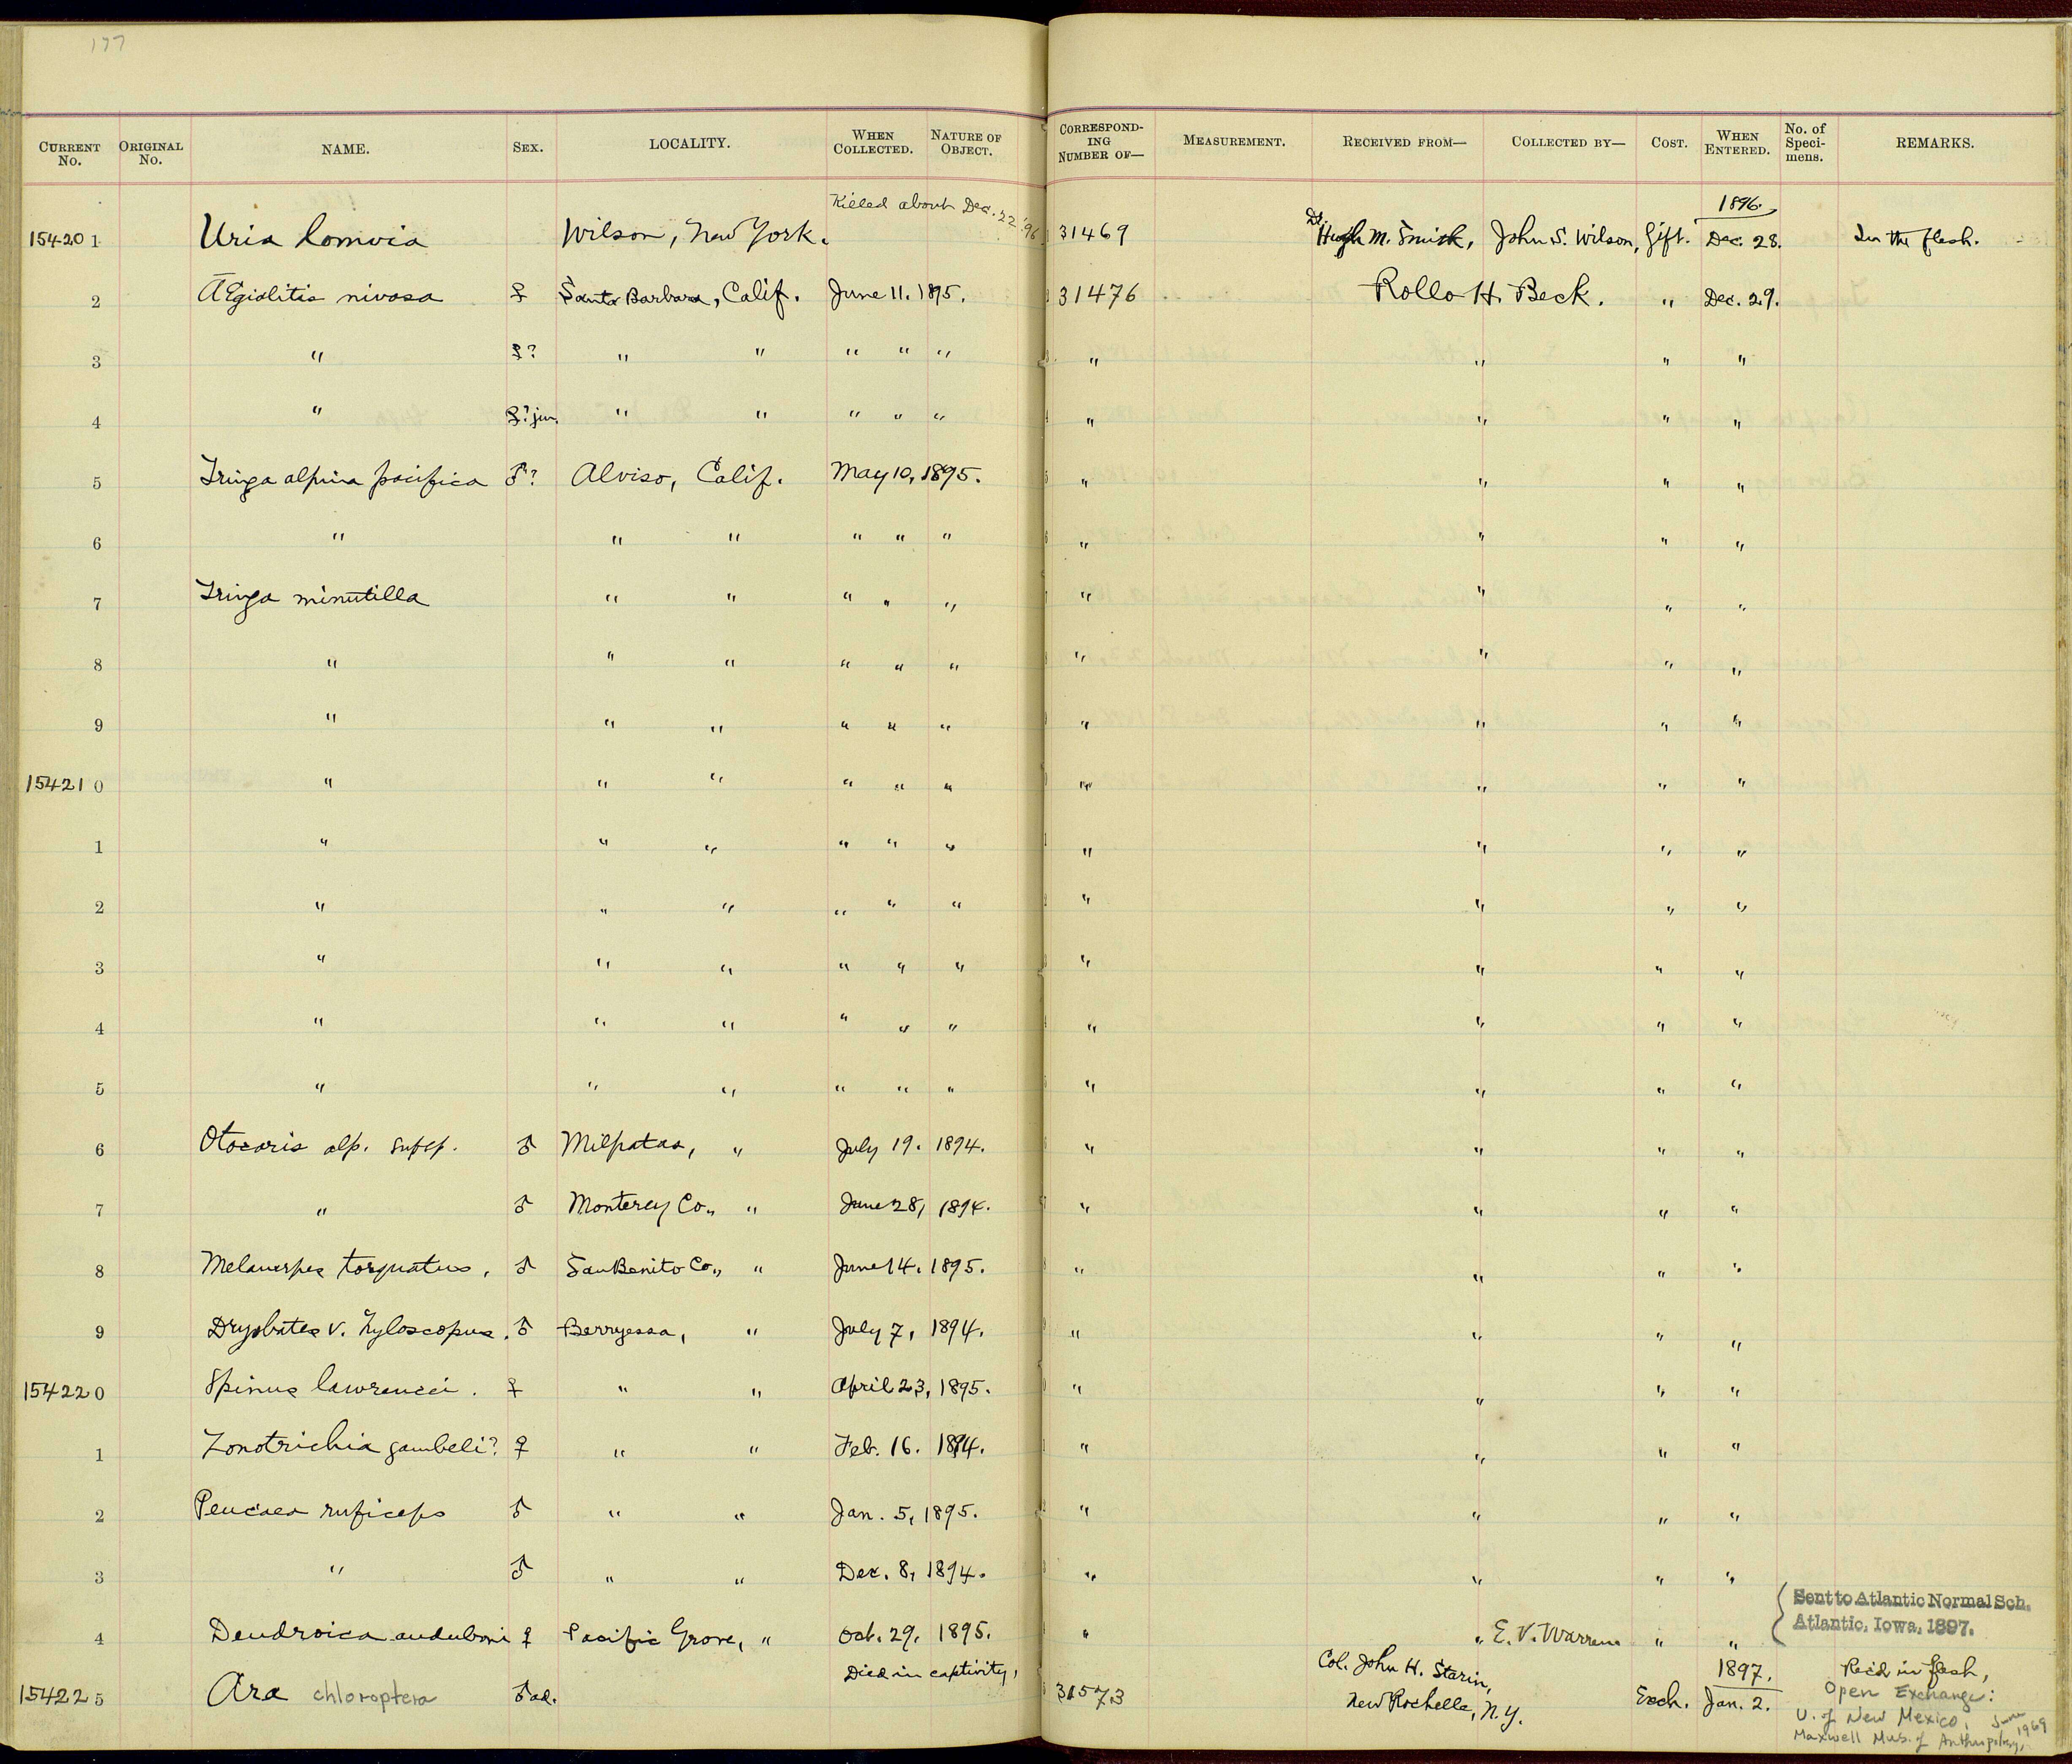 177
CURRENT No. ORIGINAL No. NAME. SEX. LOCALITY. WHEN COLLECTED. NATURE OF OBJECT. CORRESPONDING NUMBER OF— MEASUREMENT. RECEIVED FROM— COLLECTED BY— COST. WHEN ENTERED. No. of Specimens. REMARKS.
Killed about Dec. 22 '96 1896.
154201 Uria lomvia Wilson, New York. 31469 Dr. Hugh M. Smith, John S. Wilson, Gift. Dec. 28. In the flesh.
2 Ægialitis nivosa ♀ Santa Barbara, Calif. June 11. 1895. 31476 Rollo H. Beck. " Dec. 29.
3 " ♀? " " " " " " " " "
4 " ♀? juv. " " " " " " " " "
5 Tringa alpina pacifica ♂? Alviso, Calif. May 10, 1895. " " " "
6 " " " " " " " " " "
7 Tringa minutilla " " " " " " " " "
8 " " " " " " " " " "
9 " " " " " " " " " "
154210 " " " " " " " " " "
1 " " " " " " " " " "
2 " " " " " " " " " "
3 " " " " " " " " " "
4 " " " " " " " " " "
5 " " " " " " " " " "
6 Otocoris alp. subsp. ♂ Milpatas, " July 19. 1894. " " " "
7 " ♂ Monterey Co., " June 28, 1894. " " " "
8 Melanerpes torquatus, ♂ San Benito Co., " June 14. 1895. " " " "
9 Dryobates v. hyloscopus. ♂ Berryessa, " July 7, 1894. " " " "
154220 Spinus lawrencei. ♀ " " April 23, 1895. " " " "
1 Zonotrichia gambeli? ♀ " " Feb. 16. 1894. " " " "
2 Peucaea ruficeps ♂ " " Jan. 5, 1895. " " " "
3 " ♂ " " Dec. 8, 1894. " " " "
Sent to Atlantic Normal Sch.
Atlantic, Iowa, 1897.
4 Dendroica auduboni ♀ Pacific Grove, " Oct. 29. 1895. " " E. V. Warren " "
Died in captivity, Col. John H. Starin, 1897. Rec'd in flesh,
154225 Ara chloroptera ♂ ad. 31573 New Rochelle, N.Y. Exch. Jan. 2. Open Exchange:
U. of New Mexico, June 1969
Maxwell Mus. of Anthropology,